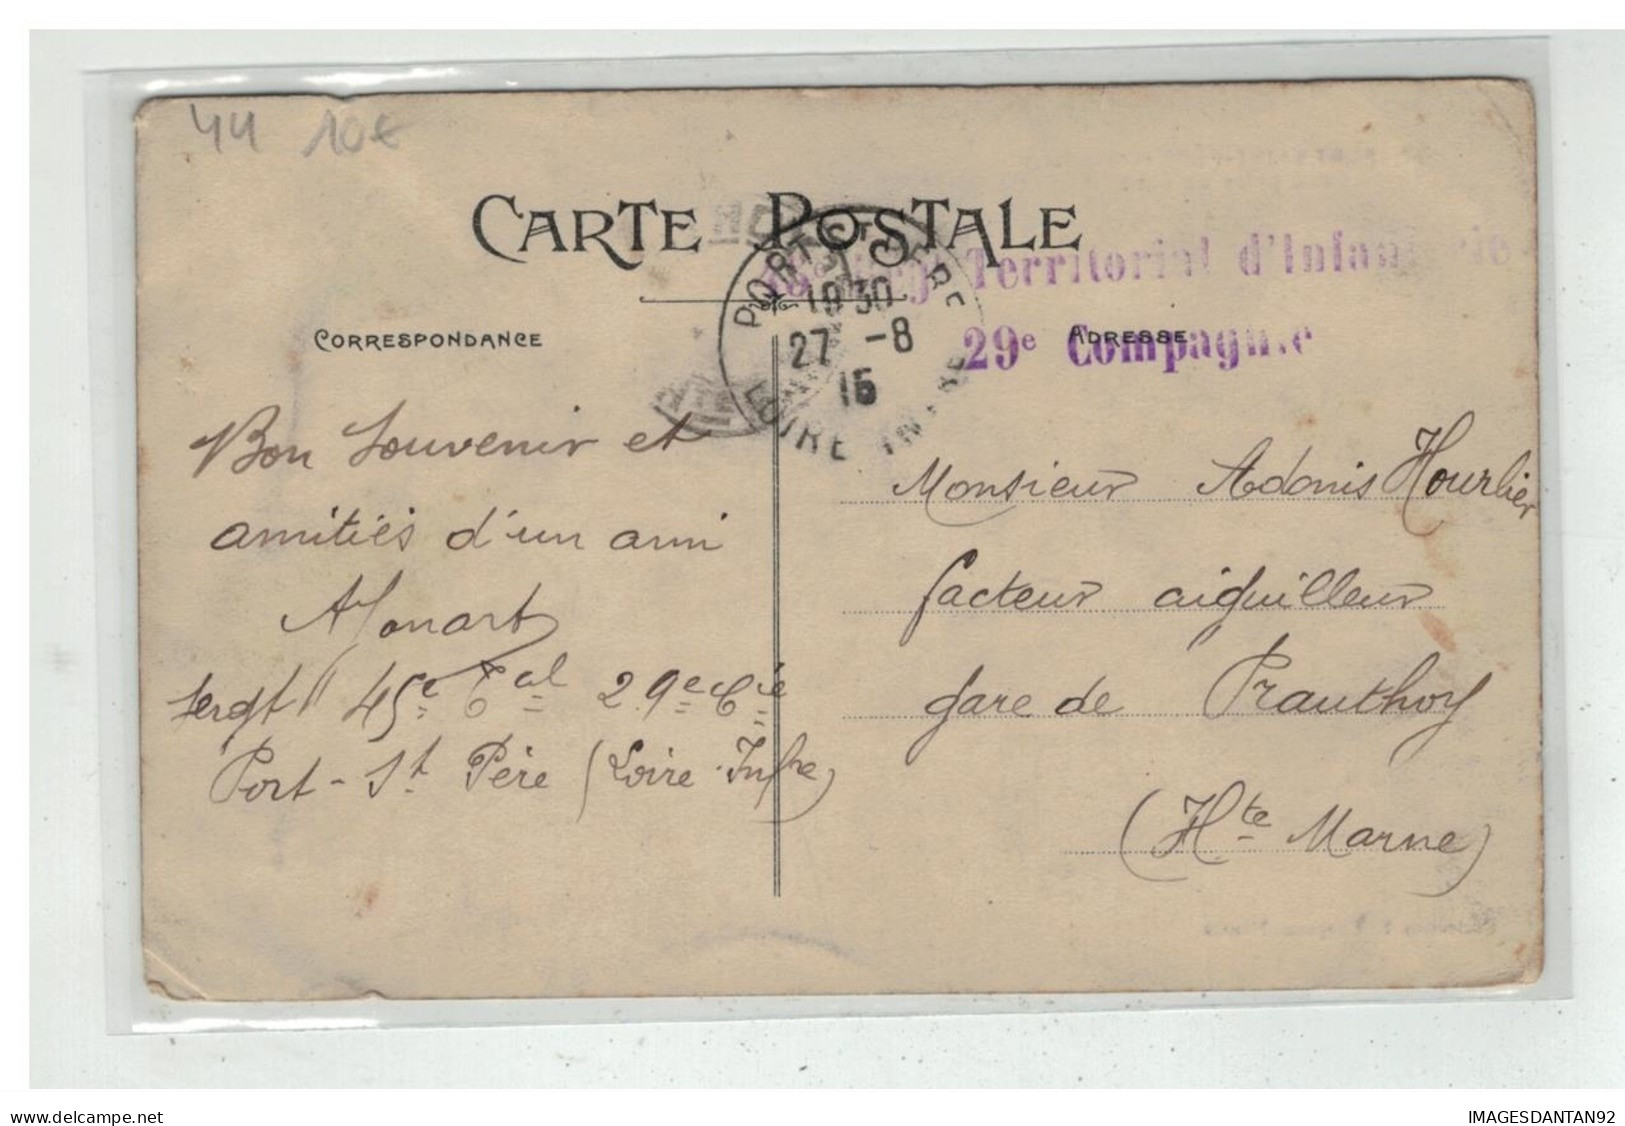 44 10€
CARTE POSTALE
Régt Territorial d'Infanterie
29e Compagnie
PORT ST PERE
19 30
27 -8
15
LOIRE INF RE
CORRESPONDANCE
ADRESSE
Bon Souvenir et
amitiés d'un ami
sergt 45e Tal 29e Cie
Port-St Père (Loire Infre)
Monsieur Adonis Hourlier
facteur aiguilleur
gare de Prauthoy
(Hte Marne)
delcampe.net
IMAGESDANTAN92